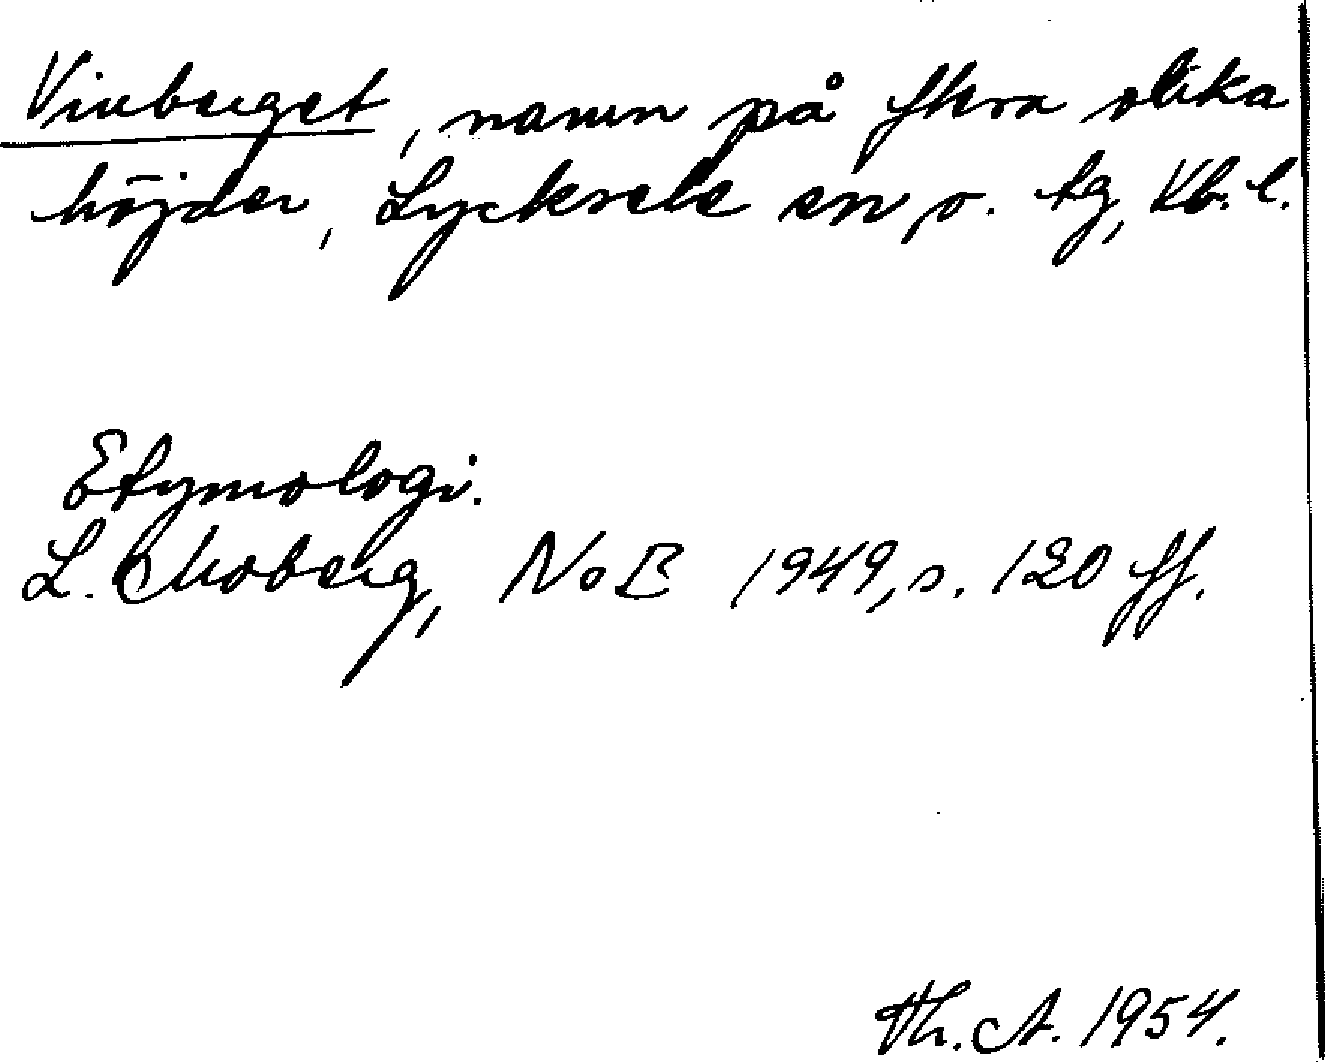 Vinberget, namn på flera olika
höjder, Lycksele sn o. tg, Vb. l.
Etymologi.
L. Moberg, NoB 1949, s. 120 ff.
Th. A. 1954.